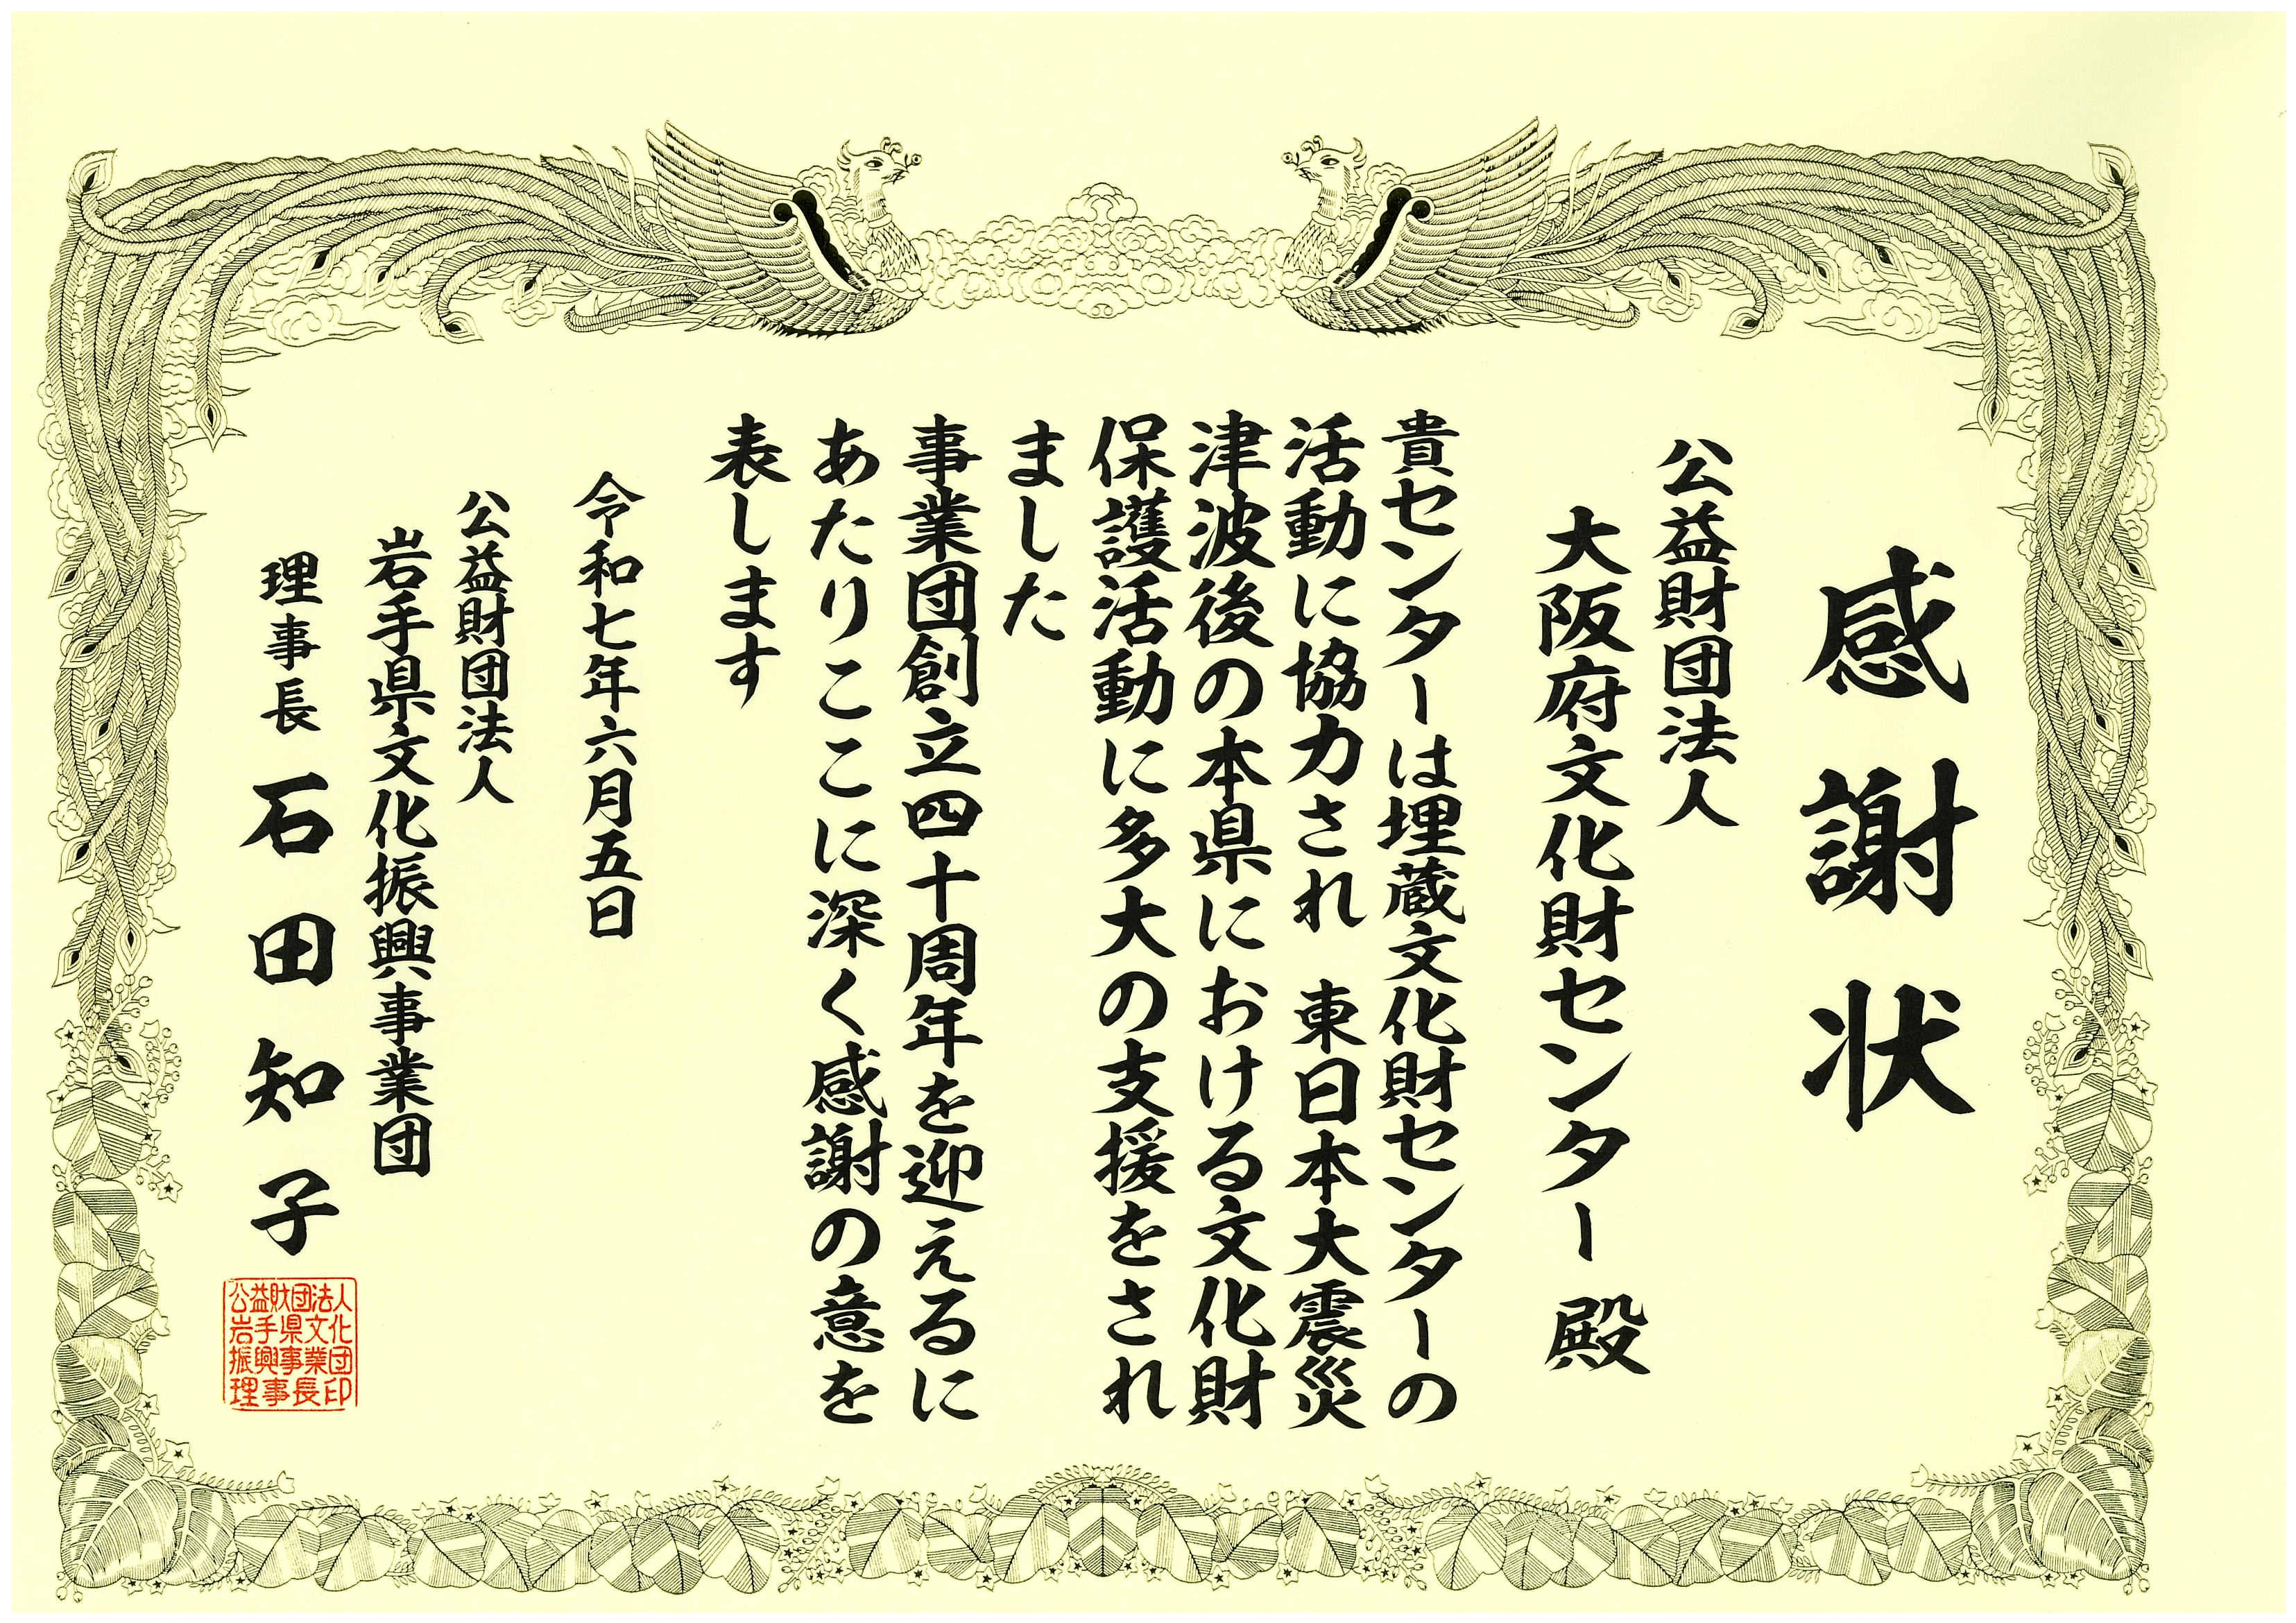 感謝状
公益財団法人
大阪府文化財センター 殿
貴センターは埋蔵文化財センターの
活動に協力され 東日本大震災
津波後の本県における文化財
保護活動に多大の支援をされ
ました
事業団創立四十周年を迎えるに
あたりここに深く感謝の意を
表します
令和七年六月五日
公益財団法人
岩手県文化振興事業団
理事長 石田知子
公益財団法人
岩手県文化
振興事業団
理事長印